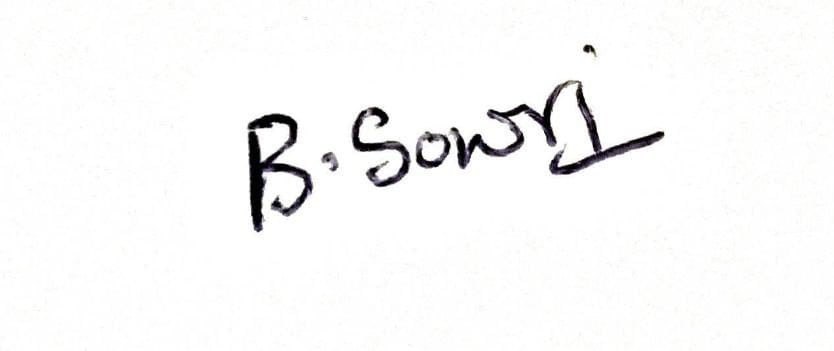 B. Sowri